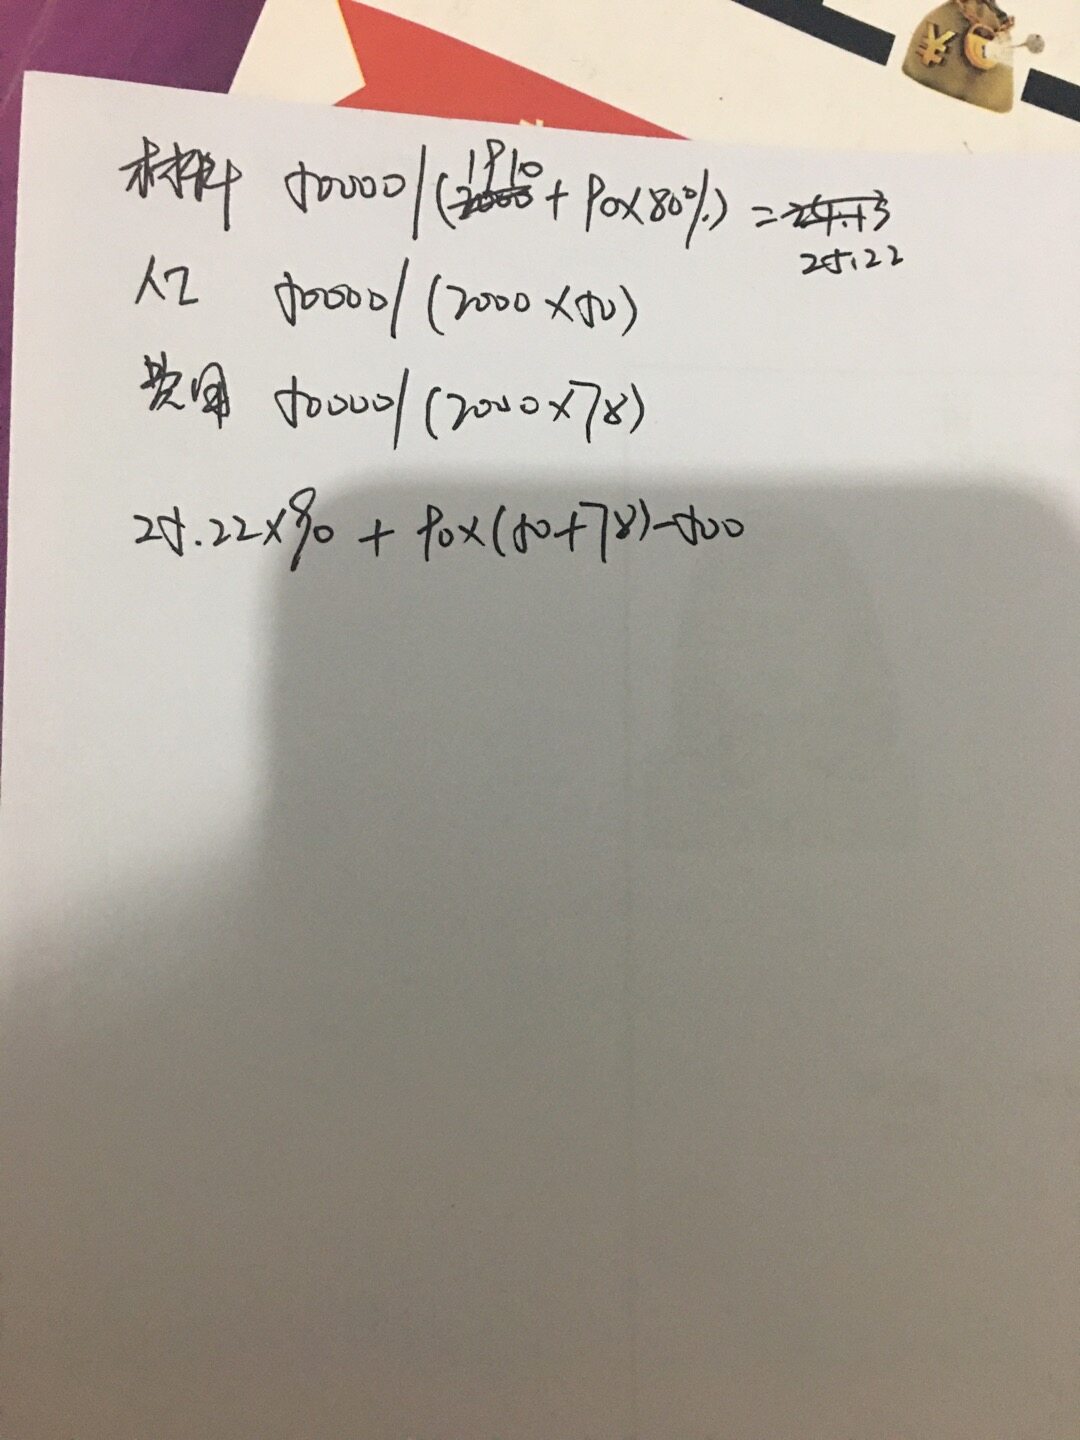 材料 50000/(1910+90×80%)=
25.22
人工 50000/(2000×50)
费用 50000/(2000×78)
25.22×90+90×(50+78)-500
¥